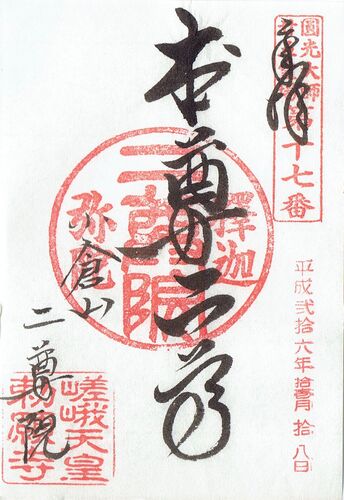 圓光大師
第十七番
奉拝
平成弐拾六年拾壹月拾八日
本尊二尊
釋迦
二尊院
弥陀
小倉山
二尊院
嵯峨天皇
勅願寺